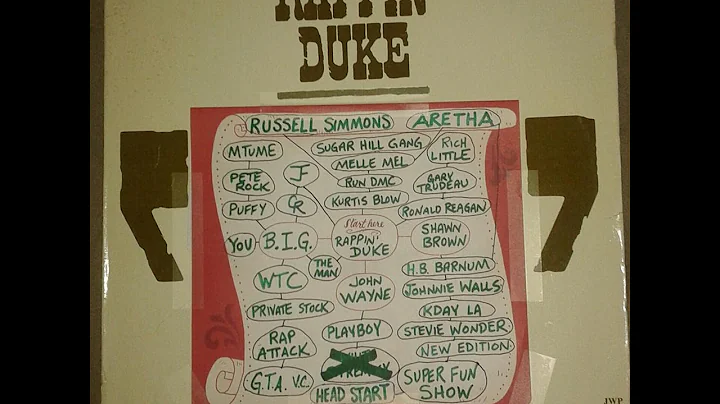 RAPPIN'
DUKE
RUSSELL SIMMONS
ARETHA
MTUME
SUGAR HILL GANG
RICH
LITTLE
MELLE MEL
PETE
ROCK
J
RUN DMC
GARY
TRUDEAU
PUFFY
CR
KURTIS BLOW
RONALD REAGAN
YOU
B.I.G.
Start here
RAPPIN'
DUKE
SHAWN
BROWN
THE
MAN
H.B. BARNUM
WTC
JOHN
WAYNE
JOHNNIE WALLS
PRIVATE STOCK
KDAY LA
RAP
ATTACK
PLAYBOY
STEVIE WONDER
NEW EDITION
G.T.A. V.C.
HEAD START
SUPER FUN
SHOW
JWP